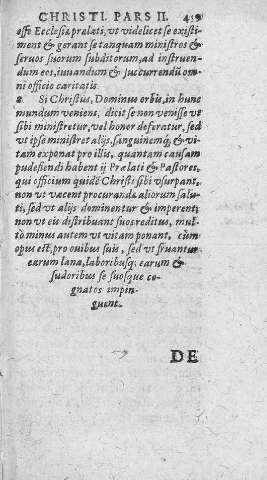 CHRISTI. PARS II.
esse Ecclesiæ prælati, vt videlicet se existi
ment & gerant se tanquam ministros &
seruos suorum subditorum, ad instruen
dum eos, iuuandum & succurrendū om
ni officio caritatis.
2. Si Christus, Dominus orbis, in hunc
mundum veniens, dicit se non venisse vt
sibi ministretur, vel honor deferatur, sed
vt ipse ministret alijs, sanguinemq; & vi
tam exponat pro illis, quantam causam
pudefiendi habent ij Prælati & Pastores,
qui officium quidē Christi sibi vsurpant,
non vt vacent procurandæ aliorum salu-
ti, sed vt alijs dominentur & imperent;
non vt eis distribuant suos reditus, mul
tò minus autem vt vitam ponant, cùm
opus est, pro ouibus suis, sed vt fruantur
earum lana, laboribusq; earum &
sudoribus se suosque co-
gnatos impin-
guent.
DE